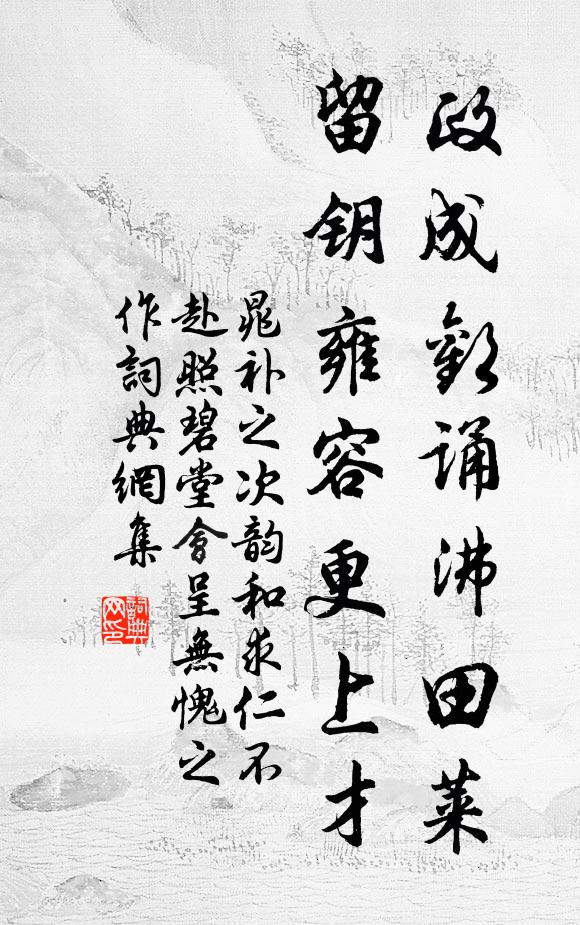 政成歡誦沸田萊
留钥雍容更上才
晁补之次韵和求仁不
赴照碧堂會呈無愧之
作詞典網集
詞典网印